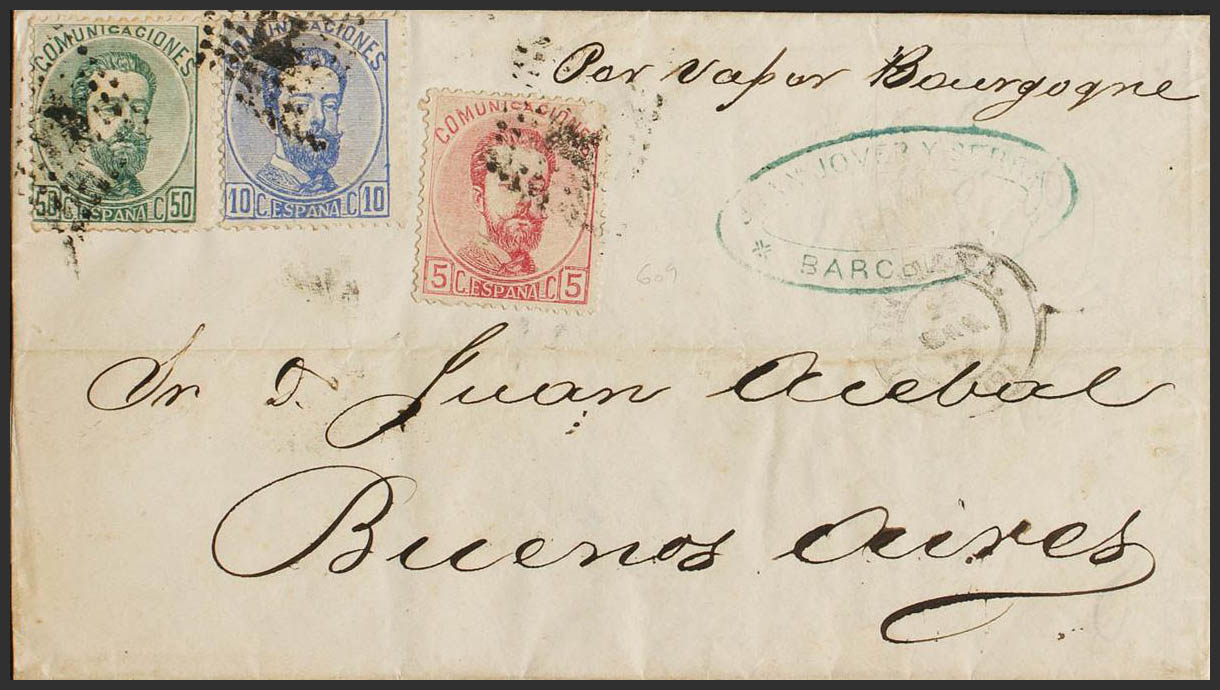 COMUNICACIONES
50 C. ESPAÑA C 50
COMUNICACIONES
10 C. ESPAÑA C 10
COMUNICACIONES
5 C. ESPAÑA C 5
Por Vapor Bourgogne
JOVER Y
BARCELONA
609
Sr D. Juan Acebal
Buenos Aires